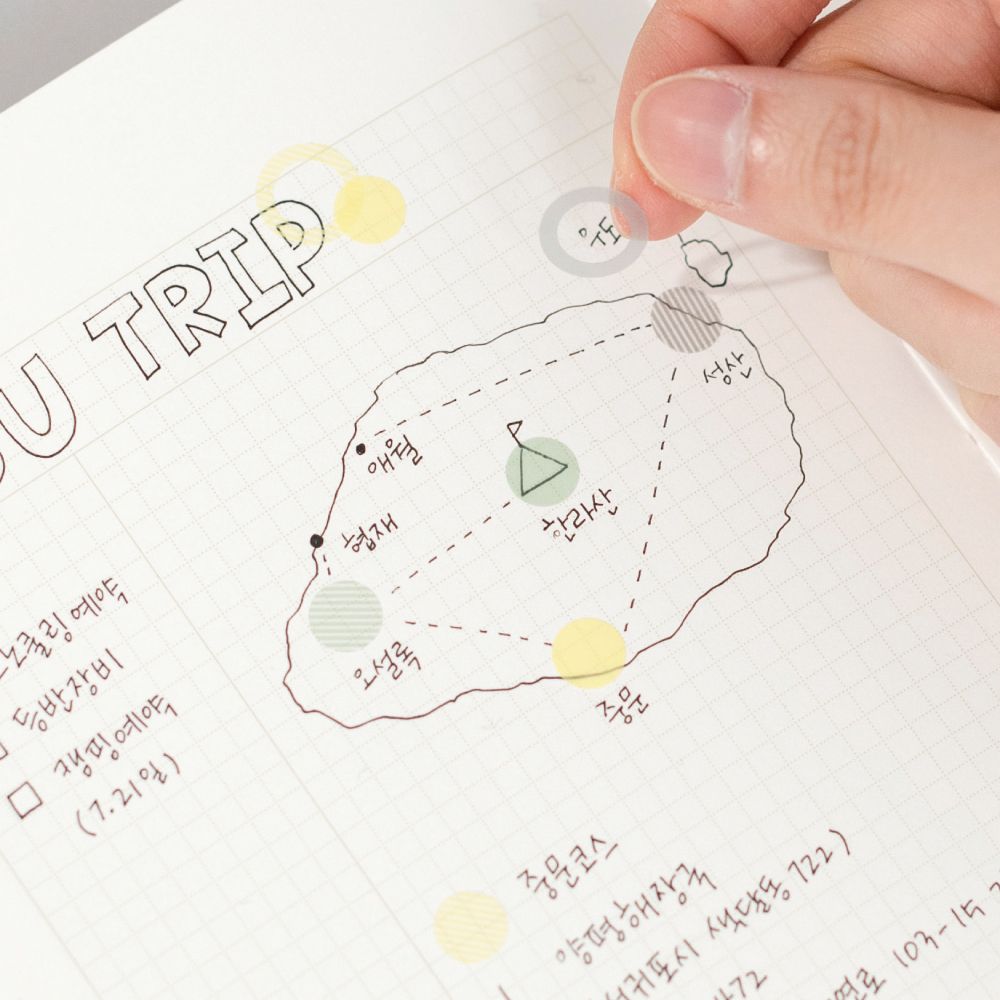 U TRIP
우도
성산
애월
한라산
협재
오설록
중문
스노쿨링 예약
등반장비
캠핑예약
(7.21일)
중문코스
양평해장국
서귀포시 색달동 722)
72
연로 103-15